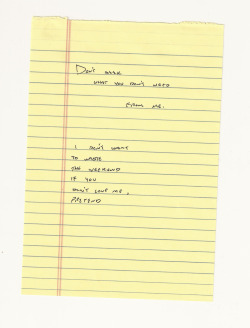 DON'T
WHAT YOU DON'T NEED
FROM ME.
I DON'T WANT
TO WASTE
THE WEEKEND
IF YOU
DON'T LOVE ME,
PRETEND